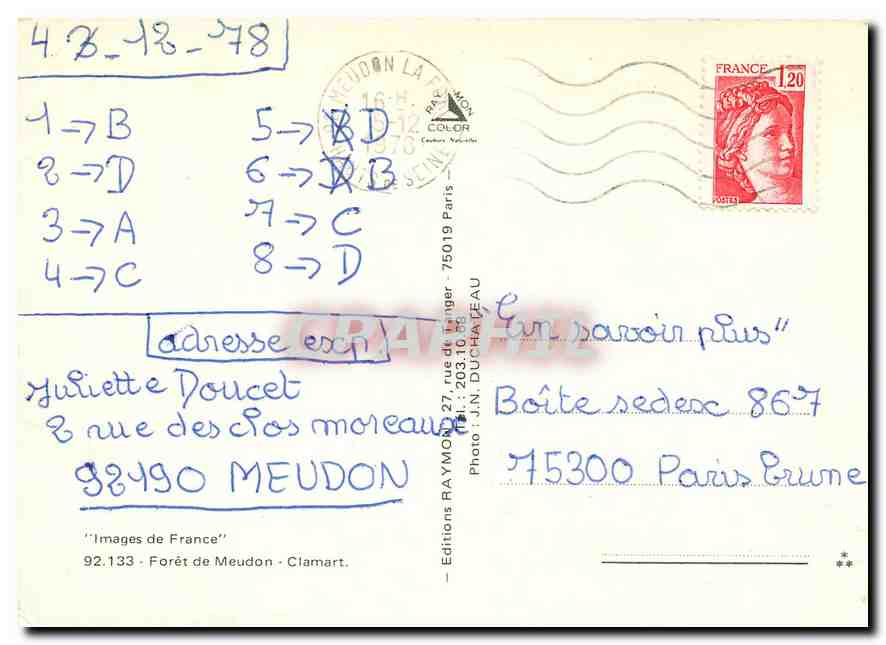 4 3-12-78
1→B 5→B D
2→D 6→D B
3→A 7→C
4→C 8→D
adresse exp!
Juliette Doucet
2 rue des clos moreaux
92190 MEUDON
"Images de France"
92.133 - Forêt de Meudon - Clamart.
MEUDON LA F
16 H.
5-12
1978
SEINE
RAYMON
COLOR
Couleurs Naturelles
— Editions RAYMON, 27, rue de Tanger - 75019 Paris —
Tél.: 203.10.88
Photo : J.N. DUCHATEAU
CPAPHIL
FRANCE 1,20
POSTES
"En savoir plus"
Boîte sedesc 867
75300 Paris Brune